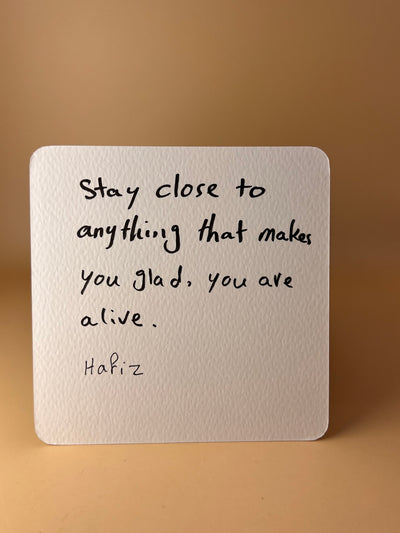 Stay close to
anything that makes
you glad, you are
alive.
Hafiz